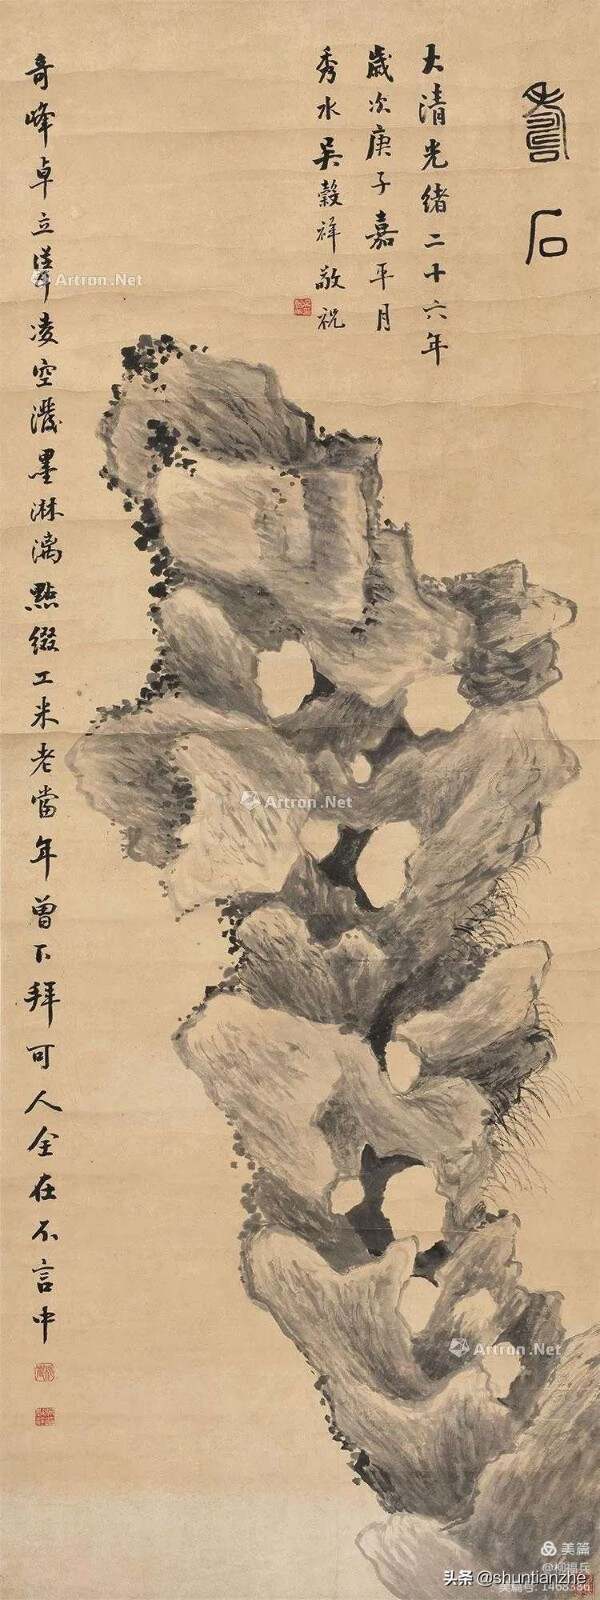 壽石
大清光緒二十六年
歲次庚子嘉平月
秀水吳穀祥敬祝
奇峰卓立凌空潑墨淋漓點綴工米老當年曾下拜可人全在不言中
Artron.Net
Artron.Net
Artron.Net
美篇
@柳福兵
美篇号: 1468386
头条 @shuntianzhe